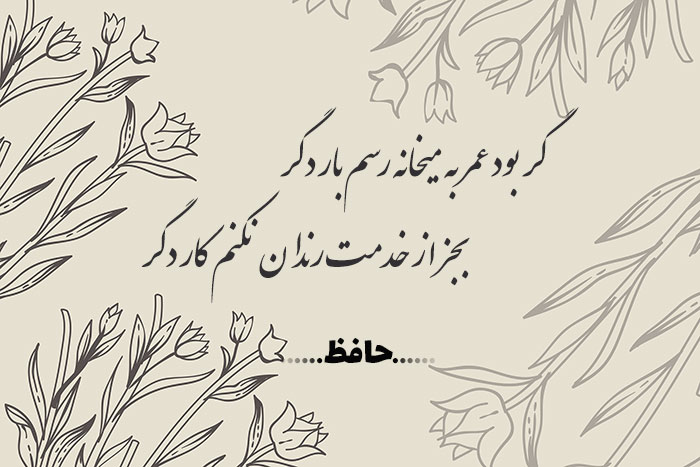 گر بود عمر به میخانه رسم بار دگر
بجز از خدمت رندان نکنم کار دگر
......حافظ......